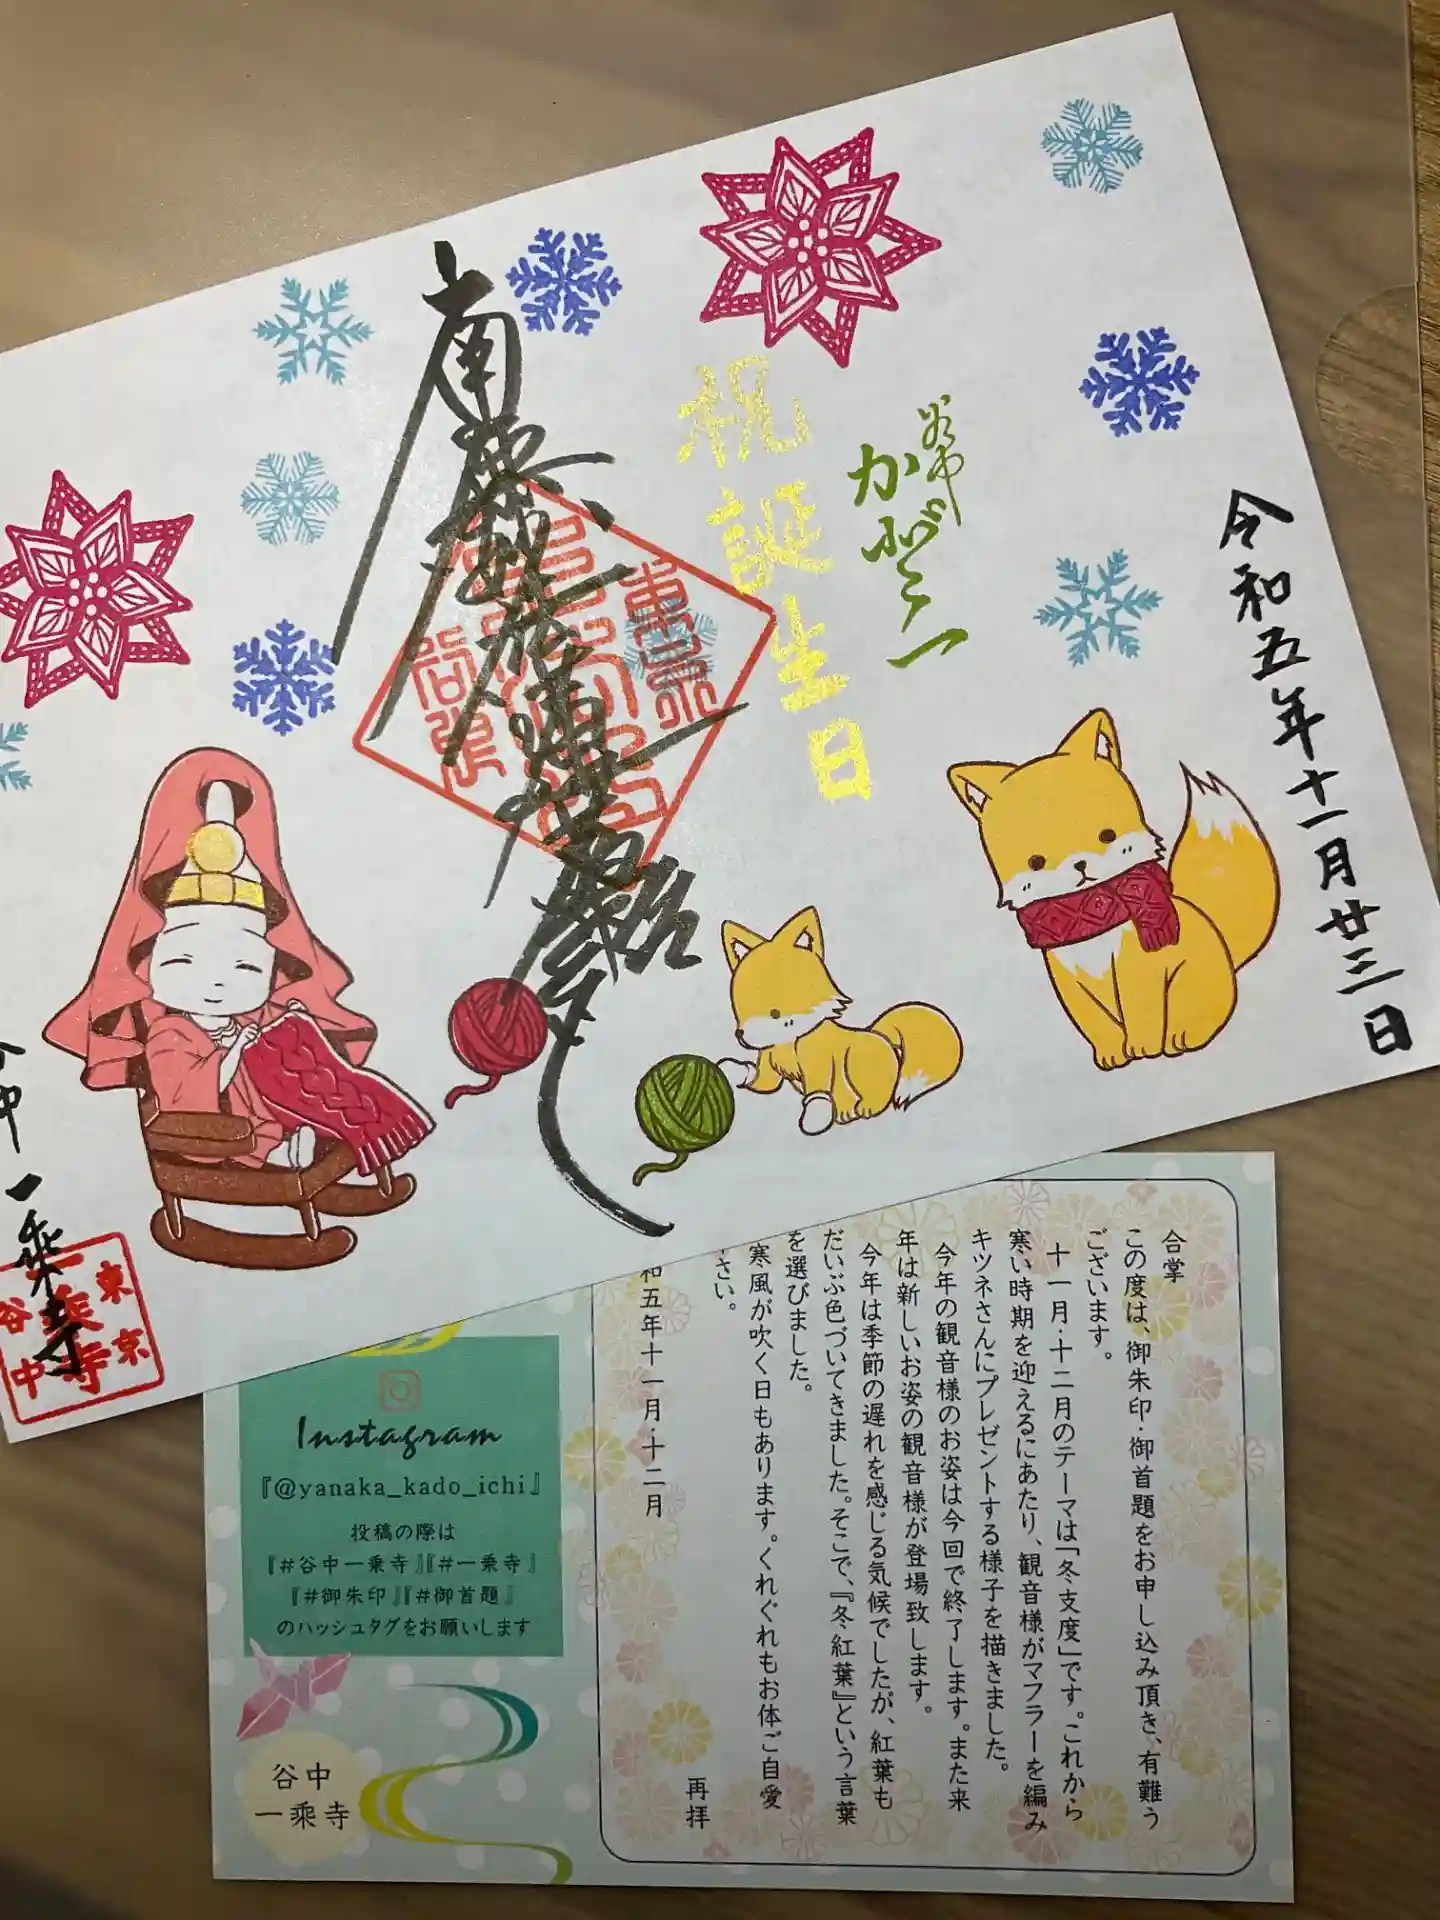 令和五年十一月廿三日
谷中
かど一
祝誕生日
南無妙法蓮華経
谷中一乗寺
東京
谷中
一乗寺
合掌
この度は、御朱印・御首題をお申し込み頂き、有難う
ございます。
十一月・十二月のテーマは「冬支度」です。これから
寒い時期を迎えるにあたり、観音様がマフラーを編み
キツネさんにプレゼントする様子を描きました。
今年の観音様のお姿は今回で終了します。また来
年は新しいお姿の観音様が登場致します。
今年は季節の遅れを感じる気候でしたが、紅葉も
だいぶ色づいてきました。そこで、『冬紅葉』という言葉
を選びました。
寒風が吹く日もあります。くれぐれもお体ご自愛
さい。
和五年十一月・十二月
再拝
Instagram
『@yanaka_kado_ichi』
投稿の際は
『#谷中一乗寺』『#一乗寺』
『#御朱印』『#御首題』
のハッシュタグをお願いします
谷中
一乗寺